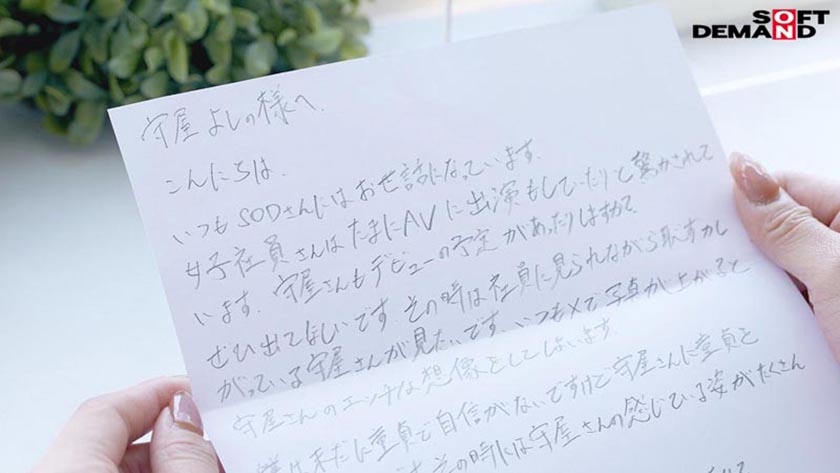 SOFT
DEMAND
ON
守屋よしの様へ
こんにちは、
いつもSODさんにはお世話になっています。
女子社員さんはたまにAVに出演もしていたりと驚かされて
います。守屋さんもデビューの予定があったりしますか？
ぜひ出てほしいです。その時は社員に見られながら恥ずかし
がっている守屋さんが見たいです。いつもXで写真が上がると
守屋さんのエッチな想像をしてしまいます。
僕は未だに童貞で自信がないですけど守屋さんに童貞を
その時には守屋さんの感じている姿がたくさん